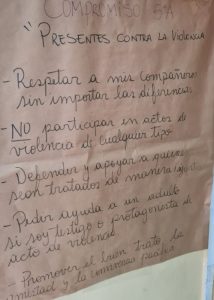 COMPROMISO 5ºA
"PRESENTES CONTRA LA VIOLENCIA
- Respetar a mis compañeros
sin importar las diferencias
- NO participar en actos de
violencia de cualquier tipo
- Defender y apoyar a quienes
sean tratados de manera
- Pedir ayuda a un adulto
si soy testigo o protagonista de
acto de violencia
- Promover el buen trato, la
amistad y la convivencia